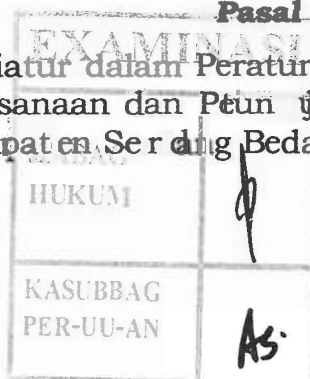 Pasal
EXAMINASI
iatur dalam Peratur
sanaan dan Petun ij
paten Serdang Beda
KABAG
HUKUM
KASUBBAG
PER-UU-AN
As.